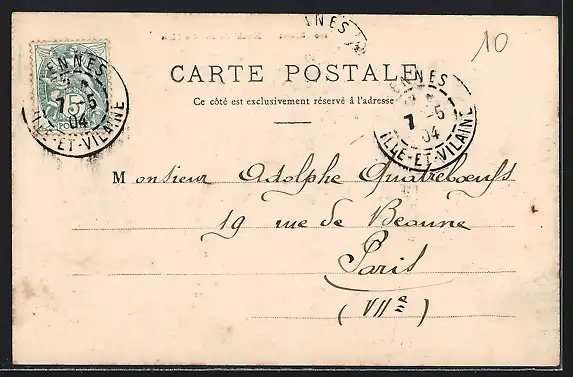 ENNES
10
CARTE POSTALE
Ce côté est exclusivement réservé à l'adresse
ENNES
7 -5
04
ILLE-ET-VILAINE
5
POSTES
ENNES
7 -5
04
ILLE-ET-VILAINE
Monsieur Adolphe Quatreboeufs
19 rue de Beaune
Paris
(VIIe)